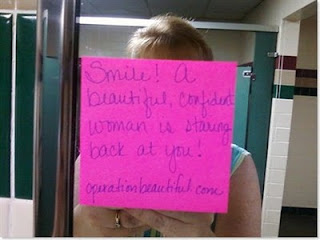 Smile! A
beautiful, confident
woman is staring
back at you!
operationbeautiful.com